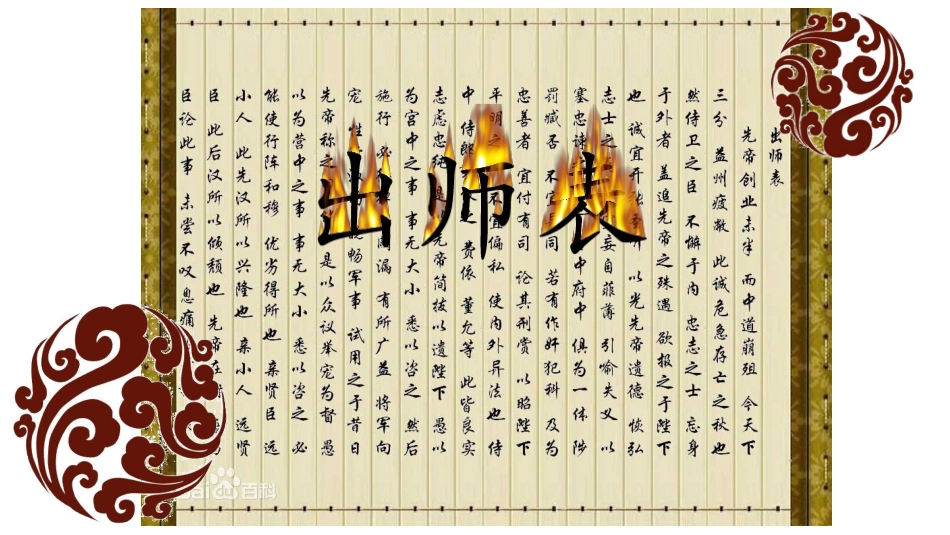 出师表
出师表
先帝创业未半 而中道崩殂 今天下
三分 益州疲敝 此诚危急存亡之秋也
然侍卫之臣 不懈于内 忠志之士 忘身
于外者 盖追先帝之殊遇 欲报之于陛下
也 诚宜开 以光先帝遗德 恢弘
志士之 妄自菲薄 引喻失义 以
塞忠谏 中府中 俱为一体 陟
罚臧否 不宜 同 若有作奸犯科 及为
忠善者 宜付有司 论其刑赏 以昭陛下
平明之 不宜偏私 使内外异法也 侍
中 侍郎 费依 董允等 此皆良实
志虑忠纯 是 先帝简拔以遗陛下 愚以
为宫中之事 事无大小 悉以咨之 然后
施行 必 漏 有所广益 将军向
宠 性 畅军事 试用之于昔日
先帝称之 是以众议举宠为督 愚
以为营中之事 事无大小 悉以咨之 必
能使行阵和穆 优劣得所也 亲贤臣 远
小人 此先汉所以兴隆也 亲小人 远贤
臣 此后汉所以倾颓也 先帝在
臣论此事 未尝不叹息痛
Bai 百科